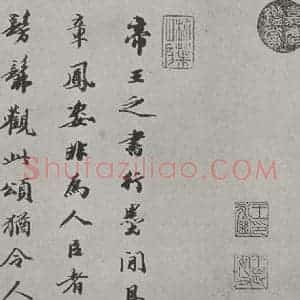 帝王之書行墨間具
章鳳姿非為人臣者
髣髴觀此頌猶令人
Shufaziliao.COM